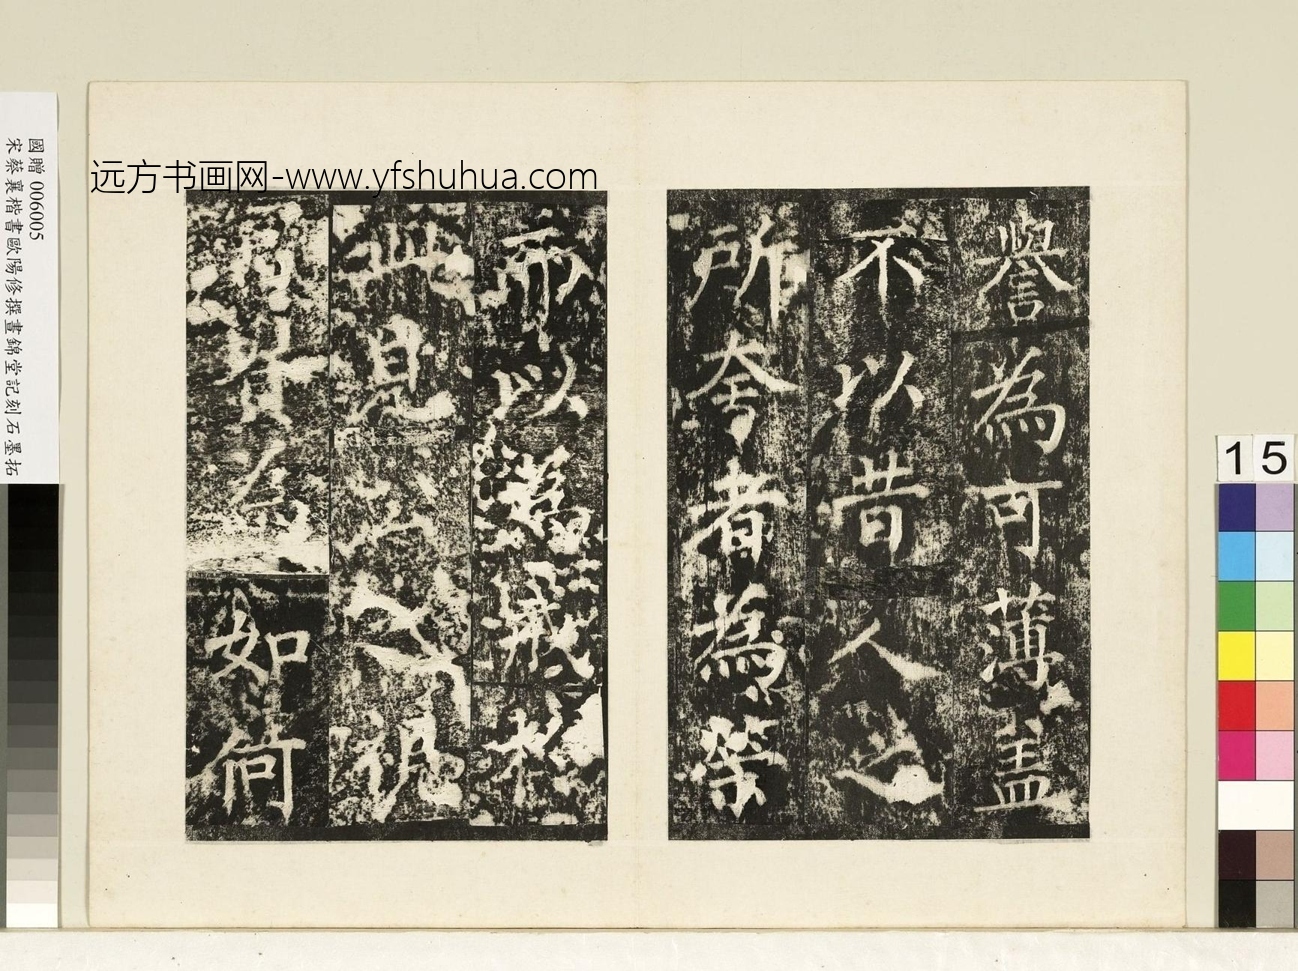 國贈 006005
宋蔡襄楷書歐陽修撰晝錦堂記刻石墨拓
远方书画网-www.yfshuhua.com
譽為可薄盖
不以昔人之
所夸者為榮
而以為戒於
此見公之視
富貴為如何
15